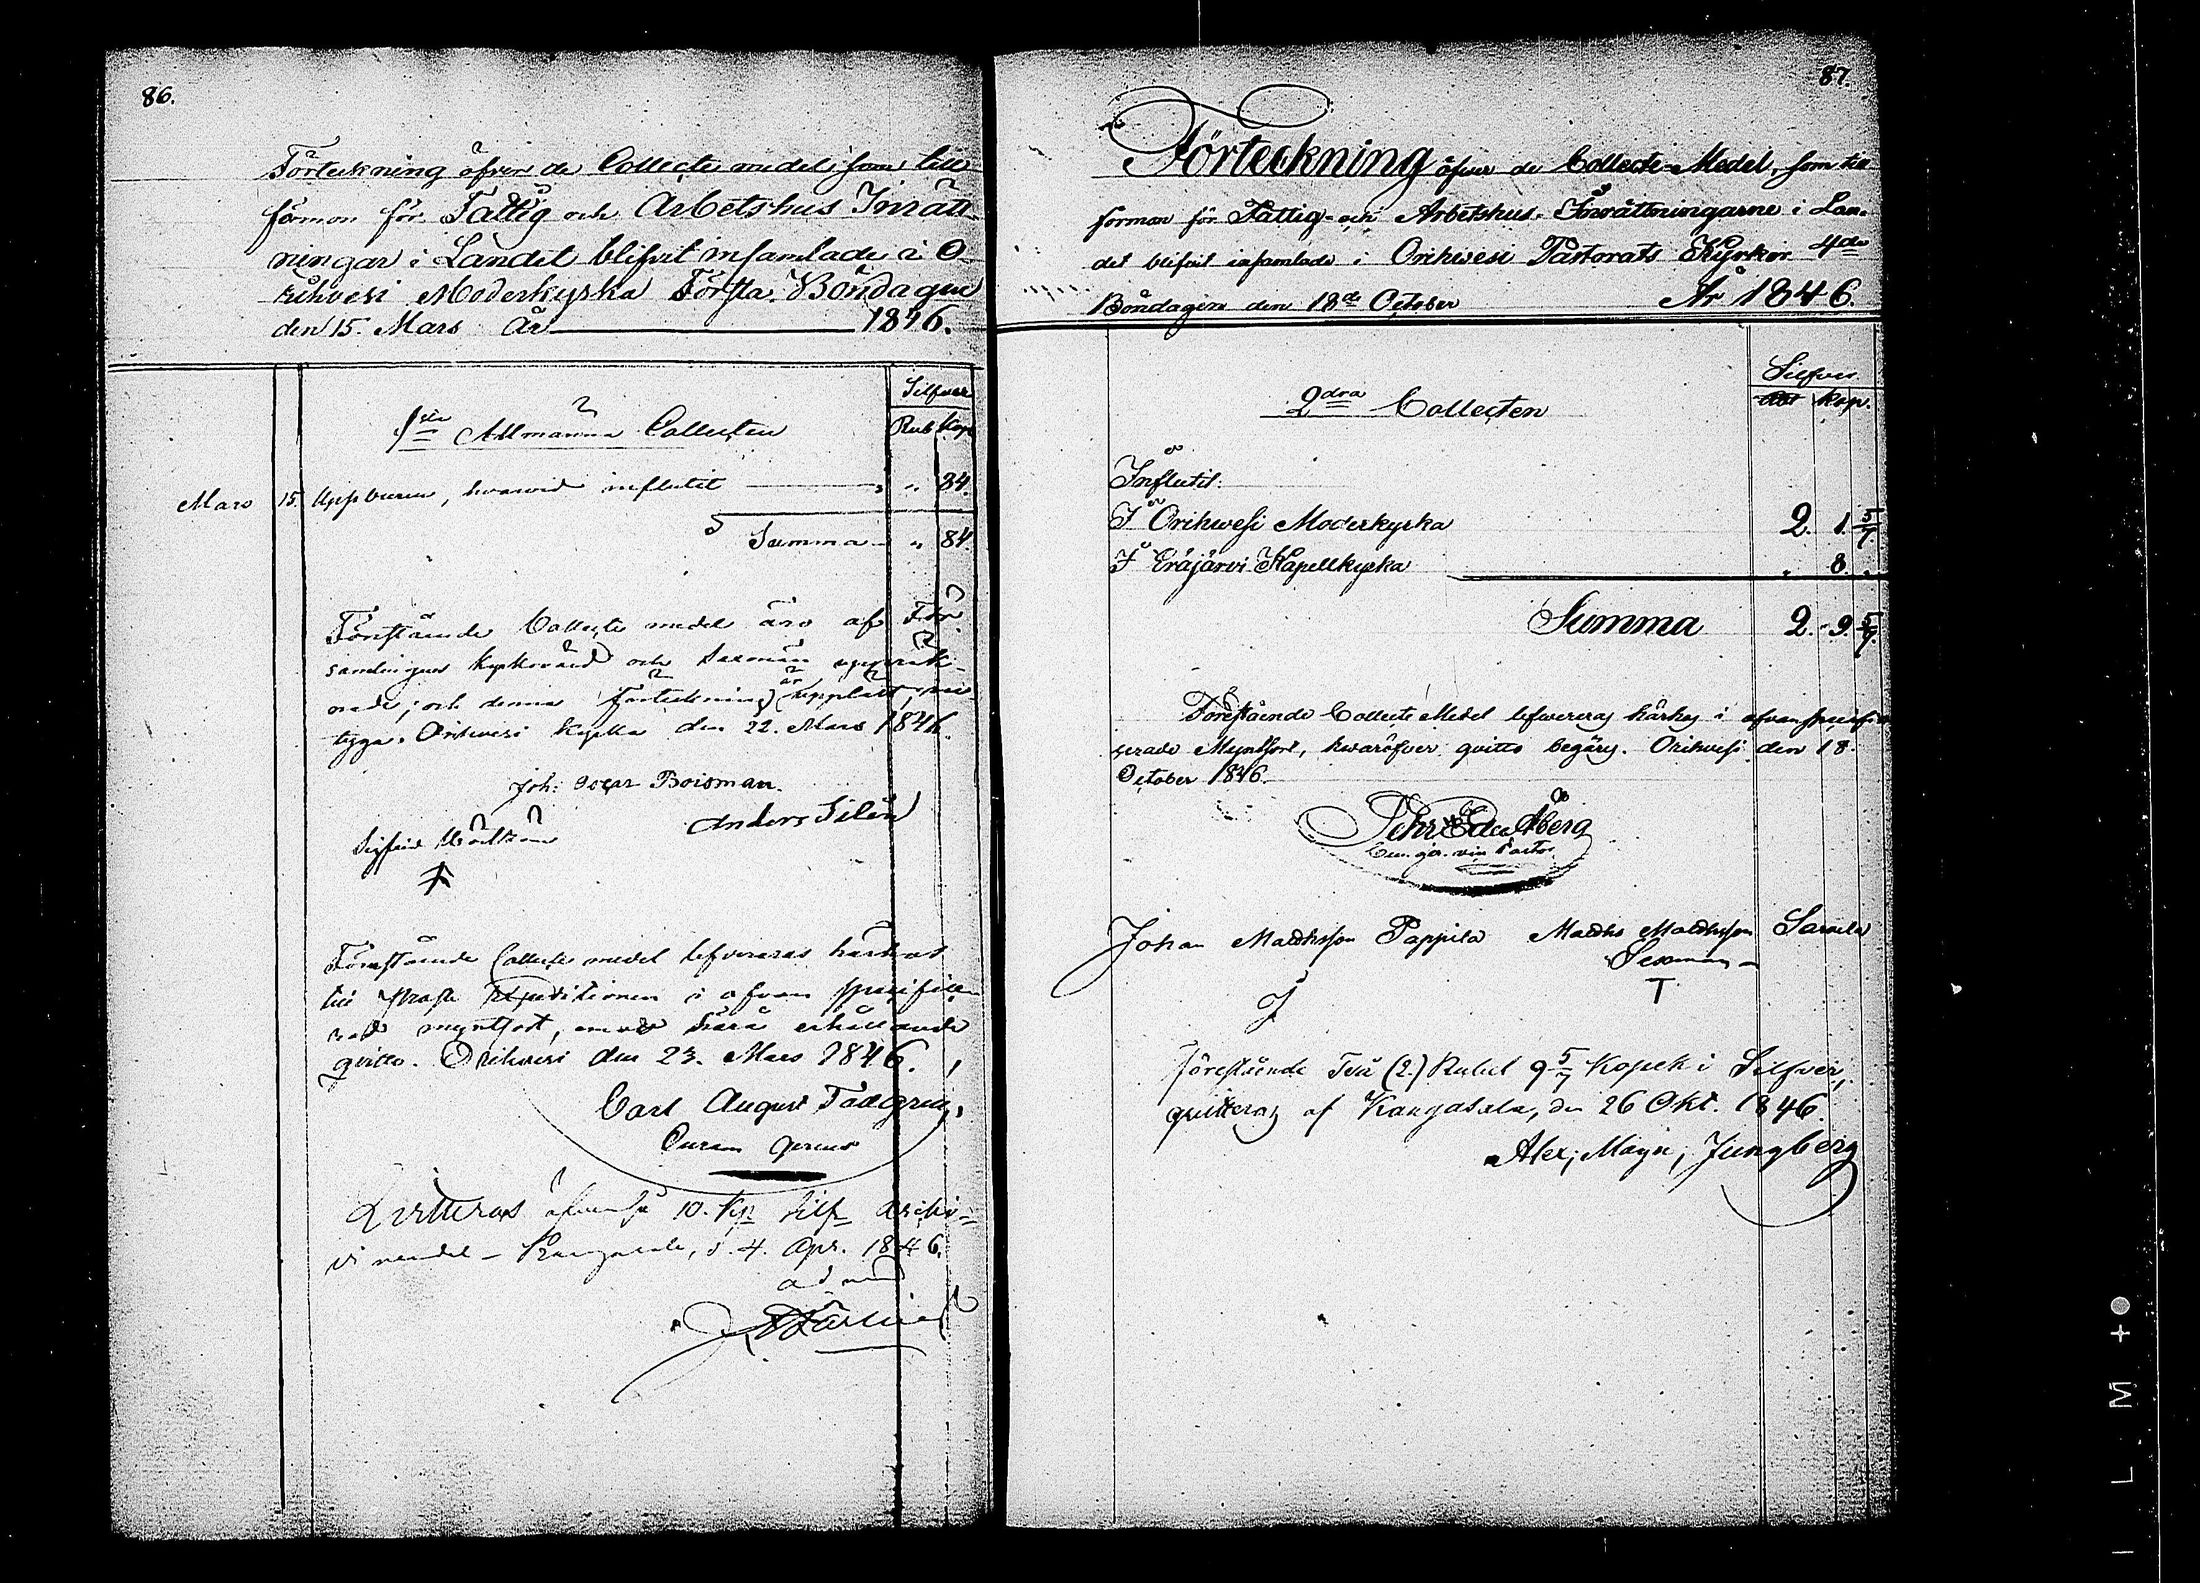 86.
Förteckning öfver de Collecte medel som till
förmon för Fattig och Arbetshus Inrätt-
ningar i Landet blifvit insamlade i O-
rihvesi Moderkyrka Första Böndagen
den 15. Mars År 1846.
Silfver
1sta Allmänna Collecten
Rub. Kop.
Mars 15. Uppburen, hvarvid influtit " 84.
Summa " 84.
Förestående Collecte medel äro af För-
samlingens kyrkovärd och Sexman uppräk-
nade, och denna förteckning är uppläst,
tyga. Orihvesi Kyrka den 22. Mars 1846.
Joh: Oscar Boisman.
Anders Silén
Sigfrid
Förestående Collecte medel lefvereras härhos
till Expeditionen i ofvan specifice-
rad myntsort, erhållande
qvitto. Orihvesi den 23. Mars 1846.
Carl August
Curam gerens
Qvitteras 10. Kop. Silf.
medel – Kangasala, d. 4. Apr. 1846.
87.
Förteckning öfver de Collecte-Medel, som till
forman för Fattig- och Arbetshus-Inrättningarne i Lan-
det blifvit insamlade i Orihwesi Pastorats Kyrkor 4de
Böndagen den 18de October År 1846.
Silfver
2dra Collecten
Kop.
Influtit:
I Orihwesi Moderkyrka 2. 1. 5/7.
I Eräjärvi Kapellkyrka " 8. "
Summa 2. 9. 5/7.
Förestående Collecte Medel lefwereras härhos i ofvanspecifi-
cerade Myntsort, hwaröfver qvitto begäres. Orihwesi den 18.
October 1846.
Pehr Edv. Åberg
Cur. ger. vice Pastor.
Johan Matthsson Pappila Matths Matthsson Sawela
Sexman
T
J
Förestående Två (2.) Rubel 9 5/7 Kopek i Silfver,
qvitteras af Kangasala, den 26 Okt. 1846.
Alex; Magn; Jungberg
I L M